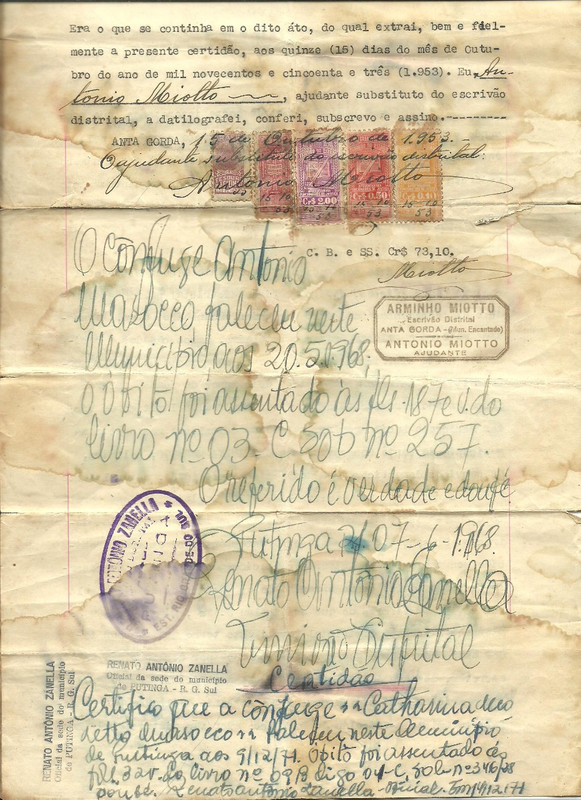 Era o que se continha em o dito áto, do qual extrai, bem e fiel-
mente a presente certidão, aos quinze (15) dias do mês de Outu-
bro do ano de mil novecentos e cincoenta e três (1.953). Eu, An-
tonio Miotto, ajudante substituto do escrivão
distrital, a datilografei, conferi, subscrevo e assino.---------
ANTA GORDA, 15 de Outubro de 1.953.-
Oajudante substituto do escrivão distrital:
Antonio Miotto
Cr$ 2,00
Cr$ 0,50
15 10
53
C. B. e SS. Cr$ 73,10.
Miotto
ARMINHO MIOTTO
Escrivão Distrital
ANTA GORDA - (Mun. Encantado)
ANTONIO MIOTTO
AJUDANTE
O Cônjuge Antonio
Marocco faleceu neste
Município aos 20.5.1968,
o óbito foi assentado às fls. 187 e v. do
livro nº 03-C sob nº 257.
O referido é verdade e dou fé
Putinga, 07-6-1.968.
Renato Antonio Zanella
Distrital
ANTÔNIO ZANELLA
EST. RIO GRANDE DO SUL
RENATO ANTÔNIO ZANELLA
Oficial da sede do município
de PUTINGA - R. G. Sul
RENATO ANTÔNIO ZANELLA
Oficial da sede do município
de PUTINGA - R. G. Sul
Certidão
Certifico que a cônjuge Catharina
faleceu neste Município
de Putinga aos 9/12/71. Óbito foi assentado às
fls. 32v. do livro nº 09/B digo 04-C, sob nº 346/
dou fé. Renato Antônio Zanella - Oficial. Em 14/12/71